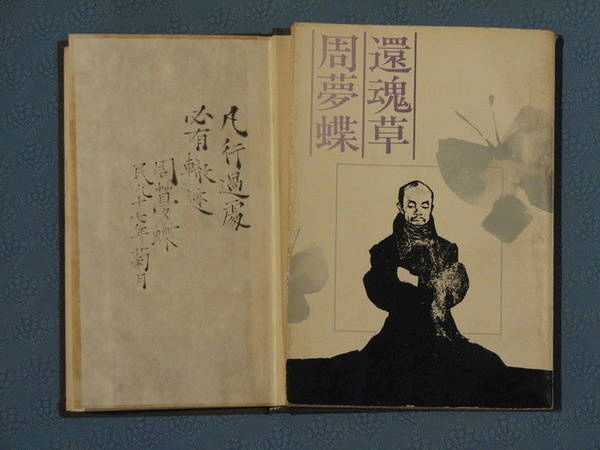 還魂草
周夢蝶
凡行過處
必有轍迹
周夢蝶
民八十七年菊月